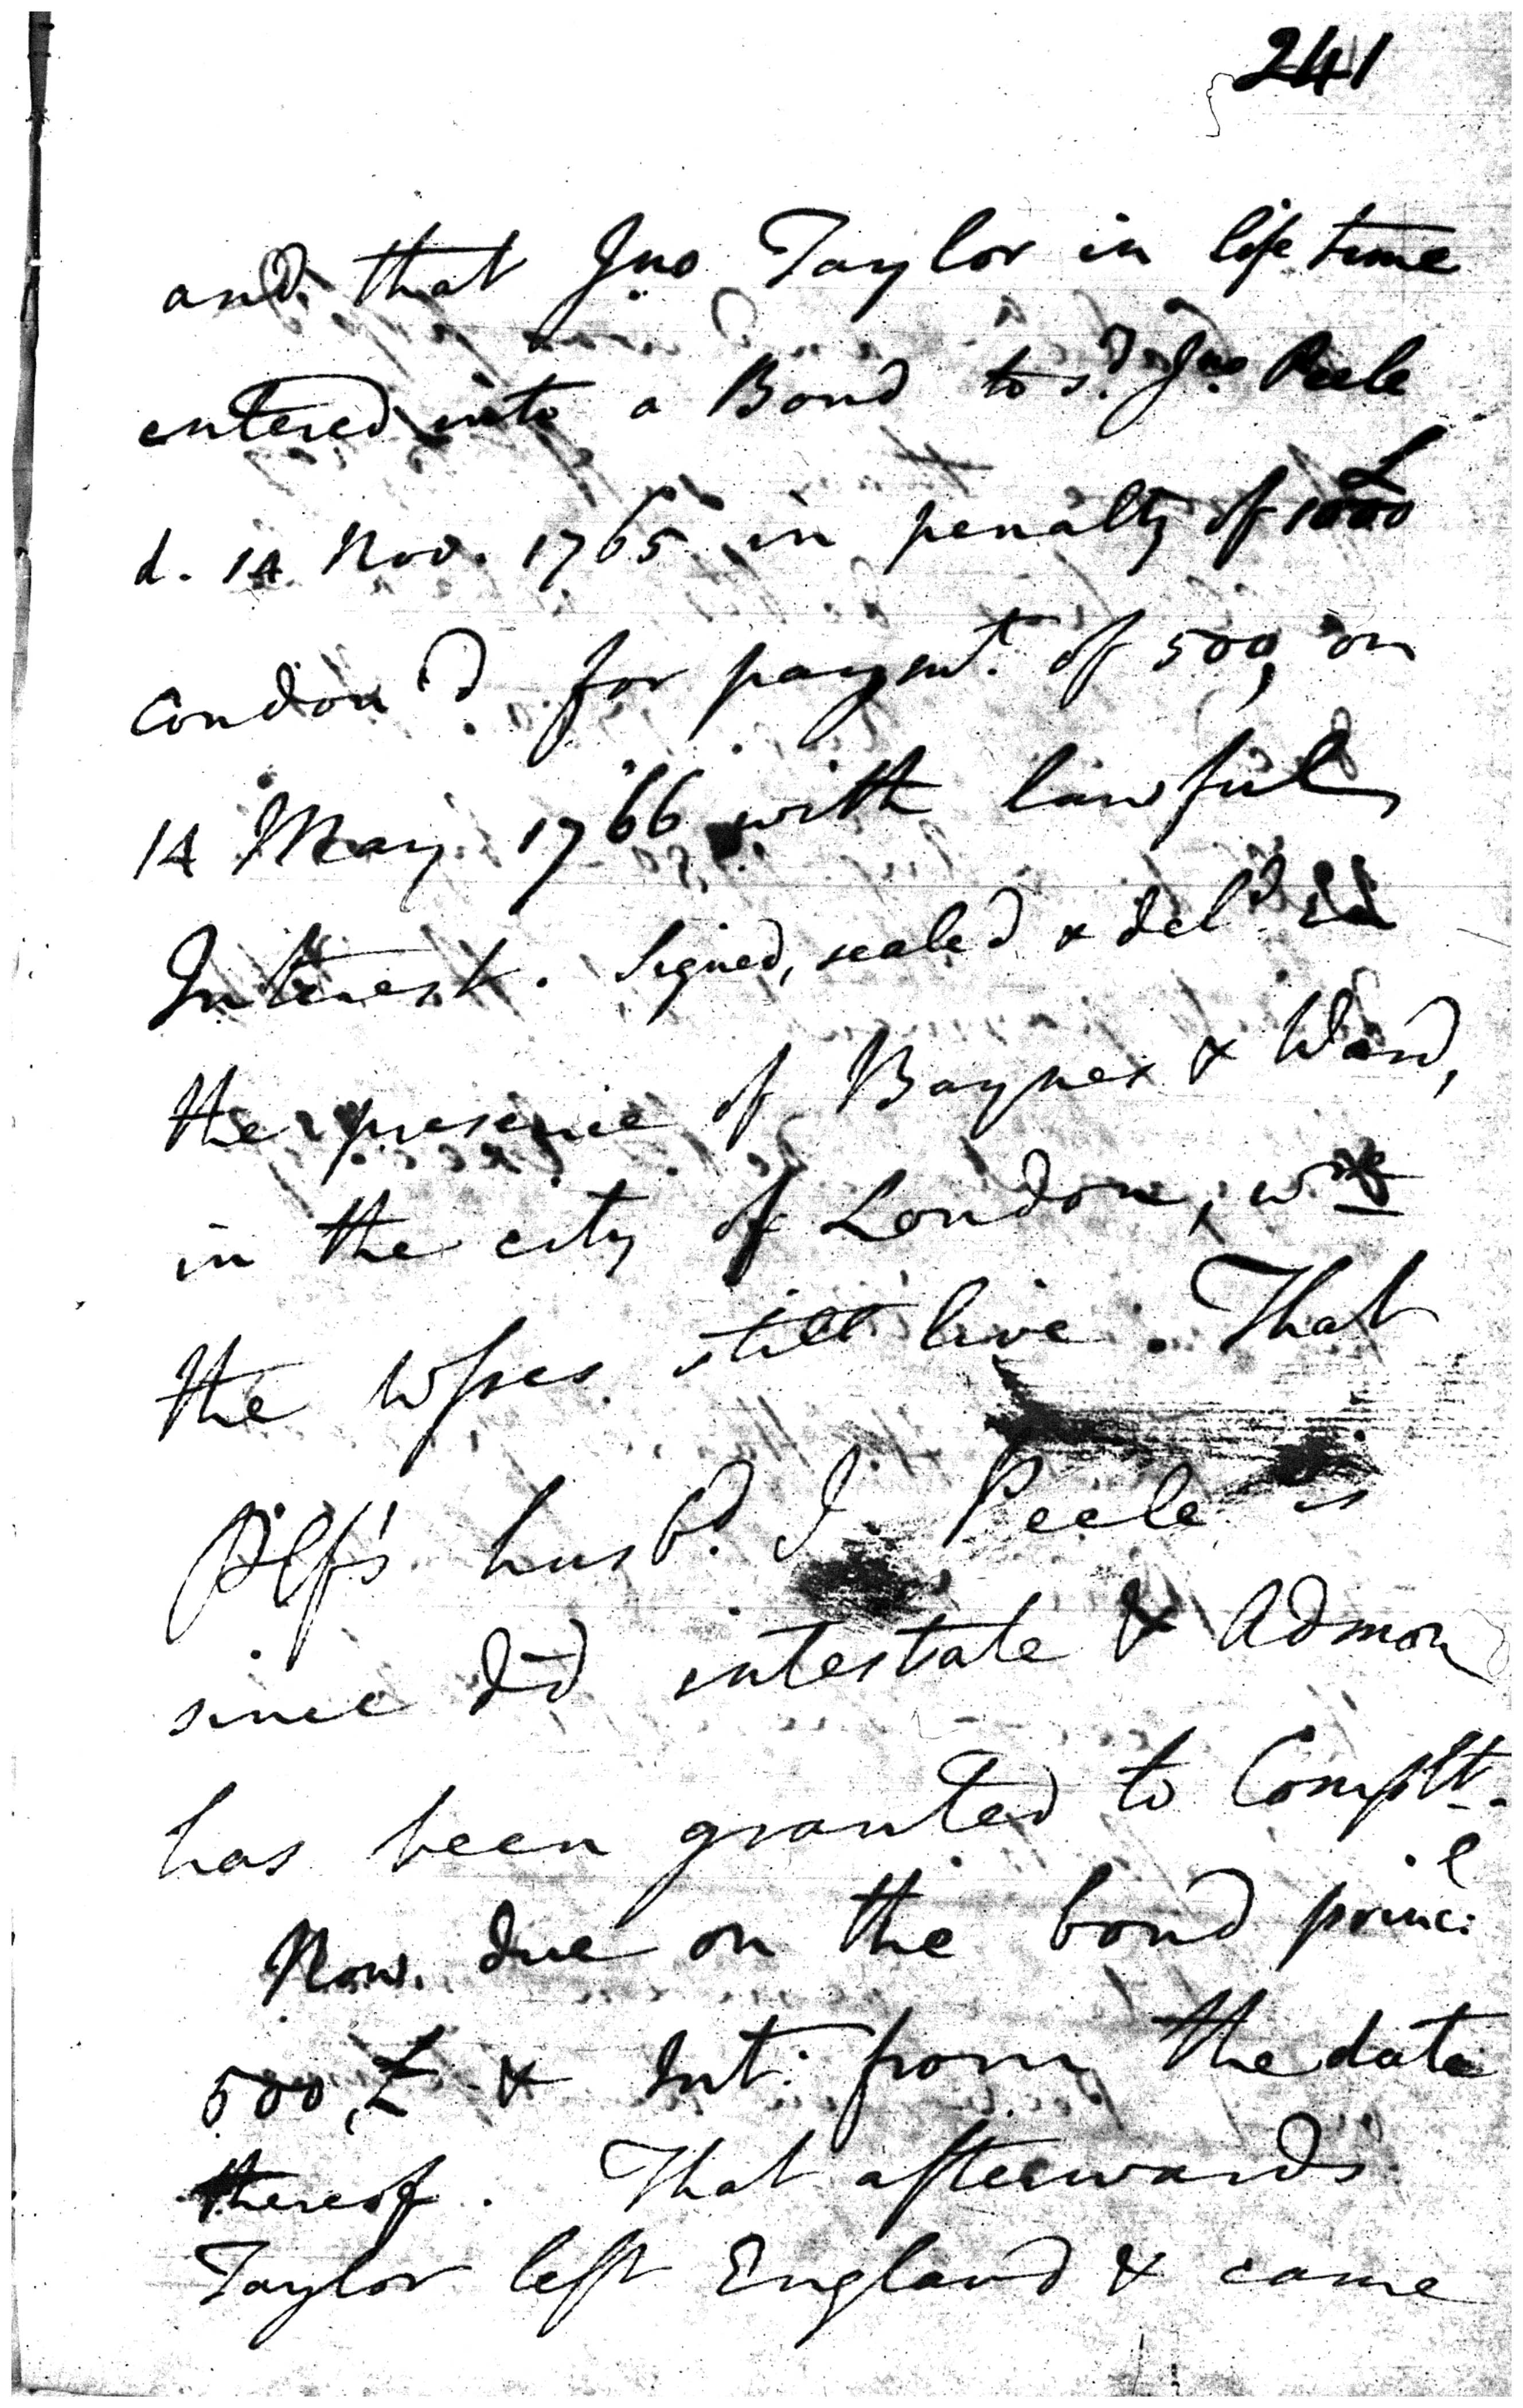 241
and that Jno Taylor in life time
entered into a Bond to sd. Jno. Peele
d. 14 Nov. 1765 in penalty of 1000£
condon'd for paymt. of 500, on
14 May 1766 with lawful
Interest. Signed, sealed & deld.
the presence of Baynes & Ward,
in the city of London,
the Wsses still live. That
Plf's husbd. J. Peele is
since d'd intestate & Admon
has been granted to Complt.
Now due on the bond princl
500,£ & Int: from the date
thereof. That afterwards
Taylor left England & came